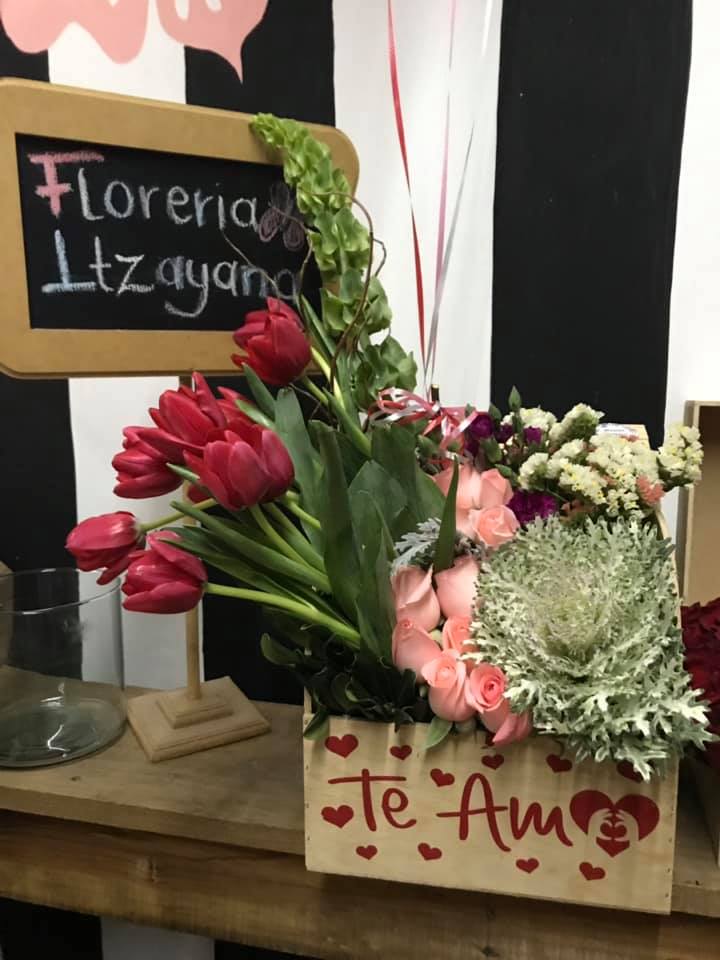 Floreria
Itzayana
Te Amo